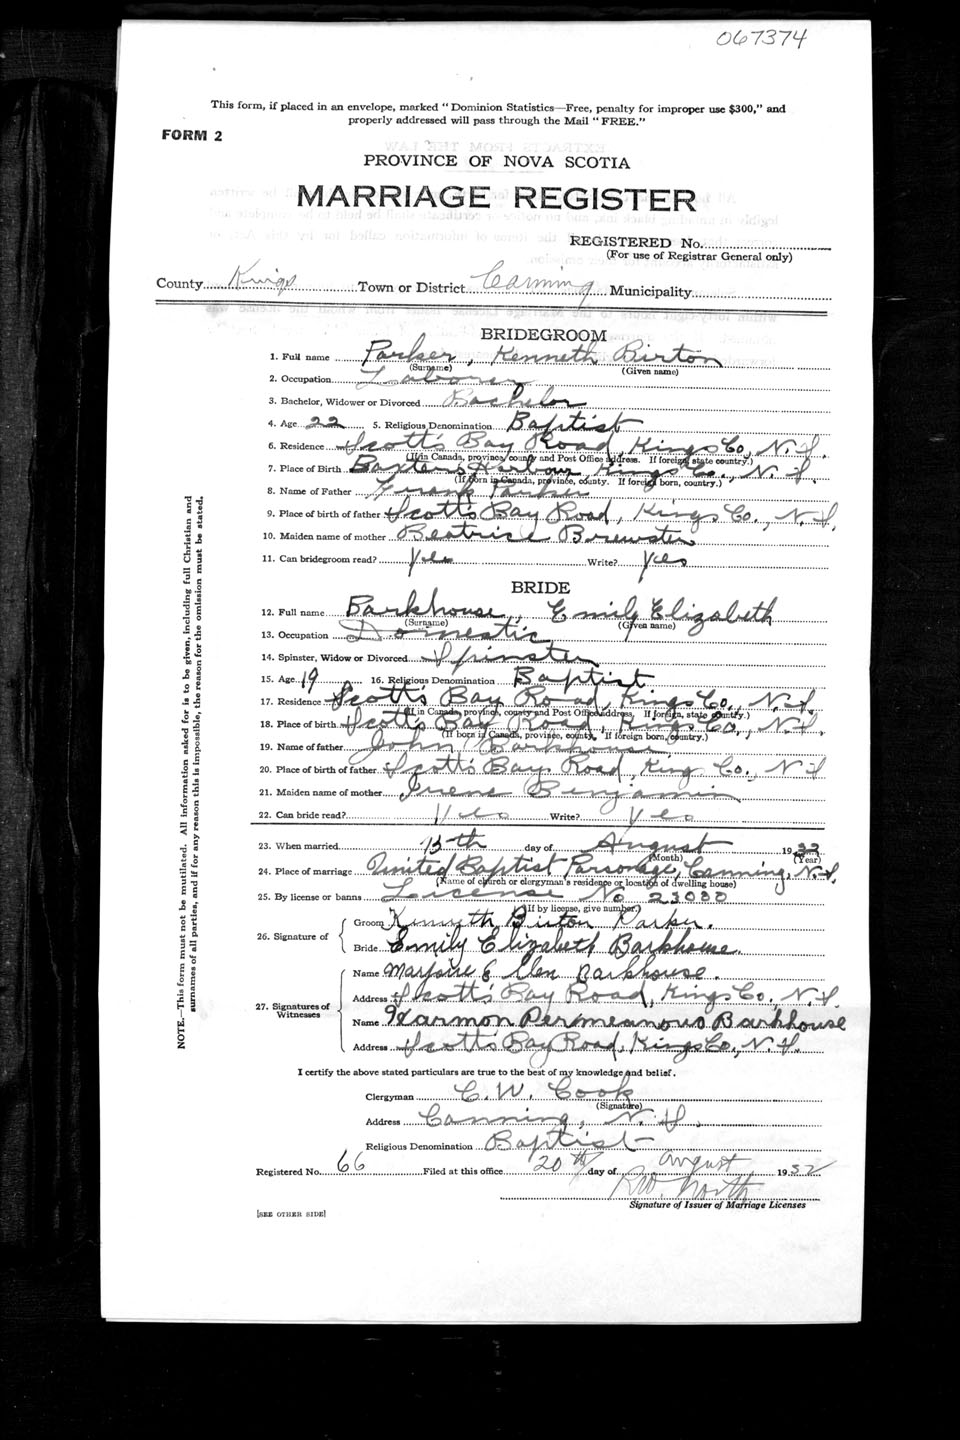 067374
This form, if placed in an envelope, marked "Dominion Statistics—Free, penalty for improper use $300," and
properly addressed will pass through the Mail "FREE."
FORM 2
PROVINCE OF NOVA SCOTIA
MARRIAGE REGISTER
REGISTERED No.
(For use of Registrar General only)
County Kings Town or District Canning Municipality
BRIDEGROOM
1. Full name Parker, Kenneth Birton
(Surname) (Given name)
2. Occupation Laborer
3. Bachelor, Widower or Divorced Bachelor
4. Age 22 5. Religious Denomination Baptist
6. Residence Scott's Bay Road, Kings Co., N.S.
(If in Canada, province, county and Post Office address. If foreign, state country.)
7. Place of Birth Baxters Harbour Kings Co., N.S.
(If born in Canada, province, county. If foreign born, country.)
8. Name of Father Frank Parker
9. Place of birth of father Scott's Bay Road, Kings Co., N.S.
10. Maiden name of mother Beatrice Brewster
11. Can bridegroom read? Yes Write? Yes
BRIDE
12. Full name Barkhouse, Emily Elizabeth
(Surname) (Given name)
13. Occupation Domestic
14. Spinster, Widow or Divorced Spinster
15. Age 19 16. Religious Denomination Baptist
17. Residence Scott's Bay Road, Kings Co., N.S.
(If in Canada, province, county and Post Office address. If foreign, state country.)
18. Place of birth Scott's Bay Road, Kings Co., N.S.
(If born in Canada, province, county. If foreign born, country.)
19. Name of father John Barkhouse
20. Place of birth of father Scott's Bay Road, King Co., N.S
21. Maiden name of mother Irene Benjamin
22. Can bride read? Yes Write? Yes
23. When married th day of August 1932
(Month) (Year)
24. Place of marriage United Baptist Parsonage, Canning, N.S.
(Name of church or clergyman's residence or location of dwelling house)
25. By license or banns License No
(If by license, give number.)
26. Signature of
Groom Kenneth Birton Parker.
Bride Emily Elizabeth Barkhouse.
27. Signatures of Witnesses
Name Marjorie E Barkhouse.
Address Scott's Bay Road, Kings Co., N.S.
Name Harmon Barkhouse
Address Scott's Bay Road, Kings Co., N.S.
I certify the above stated particulars are true to the best of my knowledge and belief.
Clergyman C. W. Cook
(Signature)
Address Canning, N.S.
Religious Denomination Baptist
Registered No. 66 Filed at this office 20th day of August 1932
North
Signature of Issuer of Marriage Licenses
[SEE OTHER SIDE]
NOTE.—This form must not be mutilated. All information asked for is to be given, including full Christian and
surnames of all parties, and if for any reason this is impossible, the reason for the omission must be stated.